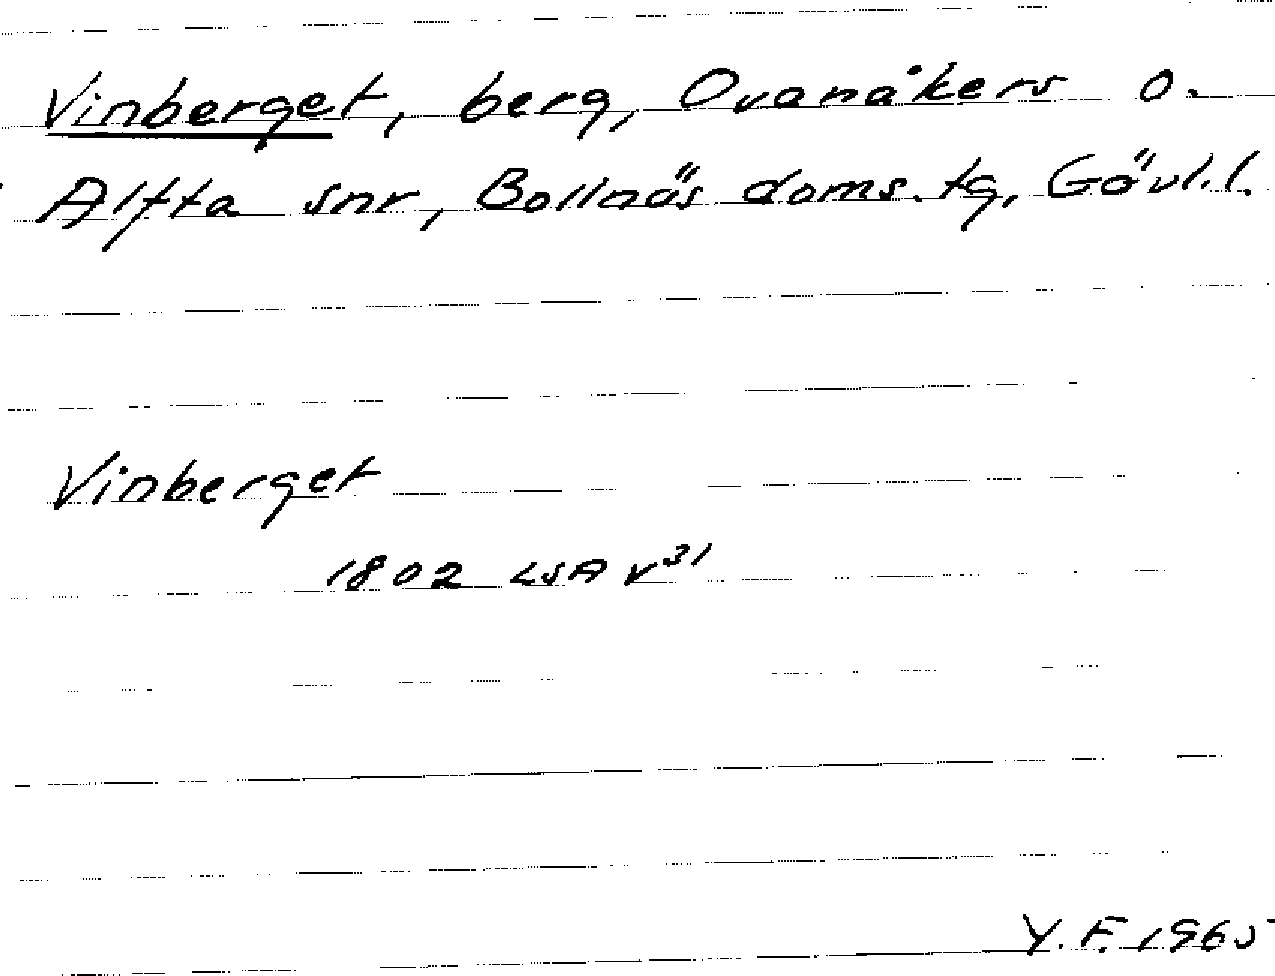 Vinberget, berg, Ovanåkers o.
Alfta snr, Bollnäs doms.tg, Gävl.l.
Vinberget
1802 LSA V31
Y.F. 1965